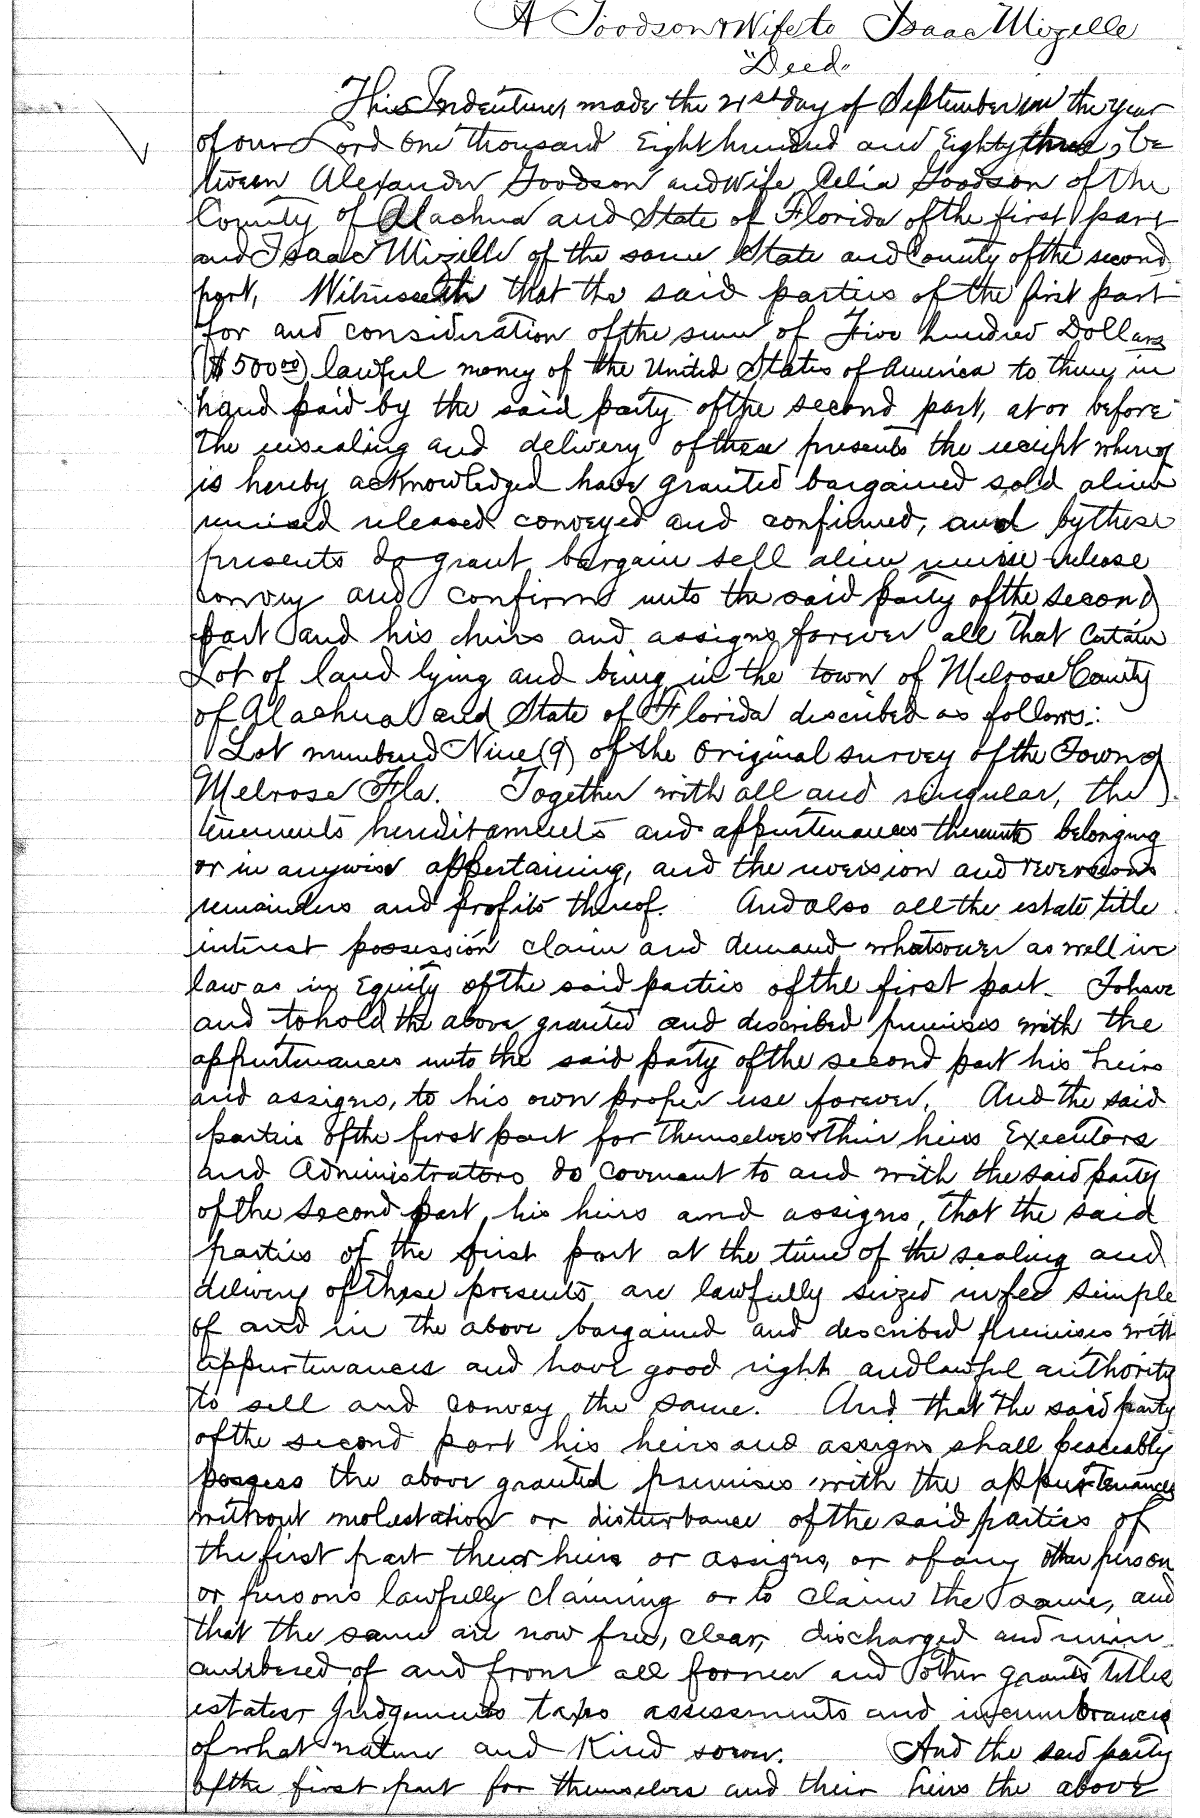 A Goodson & Wife to Isaac Mizelle
"Deed"
This Indenture, made the 21st day of September in the year
of our Lord one thousand Eight hundred and Eighty three, be
tween Alexander Goodson and wife Celia Goodson of the
County of Alachua and State of Florida of the first part
and Isaac Mizelle of the same State and County of the second
part, Witnesseth that the said parties of the first part
for and consideration of the sum of Five hundred Dollars
($500 00) lawful money of the United States of America to them in
hand paid by the said party of the second part, at or before
the ensealing and delivery of these presents the receipt whereof
is hereby acknowledged have granted bargained sold alien
remised released conveyed and confirmed, and by these
presents do grant bargain sell alien remise release
convey and confirm unto the said party of the second
part and his heirs and assigns forever all that certain
Lot of land lying and being in the town of Melrose County
of Alachua and State of Florida described as follows:
Lot numbered Nine (9) of the original survey of the Town of
Melrose Fla. Together with all and singular, the
tenements hereditaments and appurtenances thereunto belonging
or in anywise appertaining, and the reversion and reversions
remainders and profits thereof. And also all the estate title
interest possession claim and demand whatsoever as well in
law as in Equity of the said parties of the first part. To have
and to hold the above granted and described premises with the
appurtenances unto the said party of the second part his heirs
and assigns, to his own proper use forever. And the said
parties of the first part for themselves & their heirs Executors
and Administrators do covenant to and with the said party
of the second part, his heirs and assigns, that the said
parties of the first part at the time of the sealing and
delivery of these presents are lawfully seized in fee simple
of and in the above bargained and described premises with
appurtenances and have good right and lawful authority
to sell and convey the same. And that the said party
of the second part his heirs and assigns shall peaceably
possess the above granted premises with the appurtenances
without molestation or disturbance of the said parties of
the first part their heirs or assigns, or of any other person
or persons lawfully claiming or to claim the same, and
that the same are now free, clear, discharged and unin
cumbered of and from all former and other grants titles
estates judgements taxes assessments and incumbrances
of what nature and Kind soever. And the said party
of the first part for themselves and their heirs the above